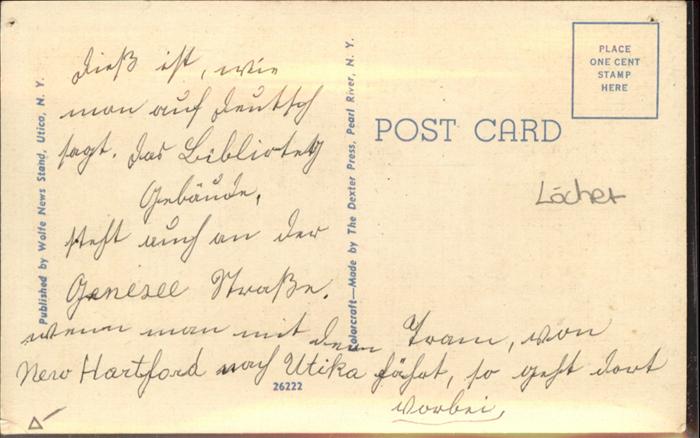 Dieß ist, wie
man auf deutsch
sagt. das Bibliotek
Gebäude,
steht auch an der
Genesee Straße.
wenn man mit dem Tram, von
New Hartford nach Utika fährt, so geht dort
vorbei,
POST CARD
PLACE
ONE CENT
STAMP
HERE
Löcher
Published by Wolfe News Stand, Utica, N. Y.
Colorcraft—Made by The Dexter Press, Pearl River, N. Y.
26222